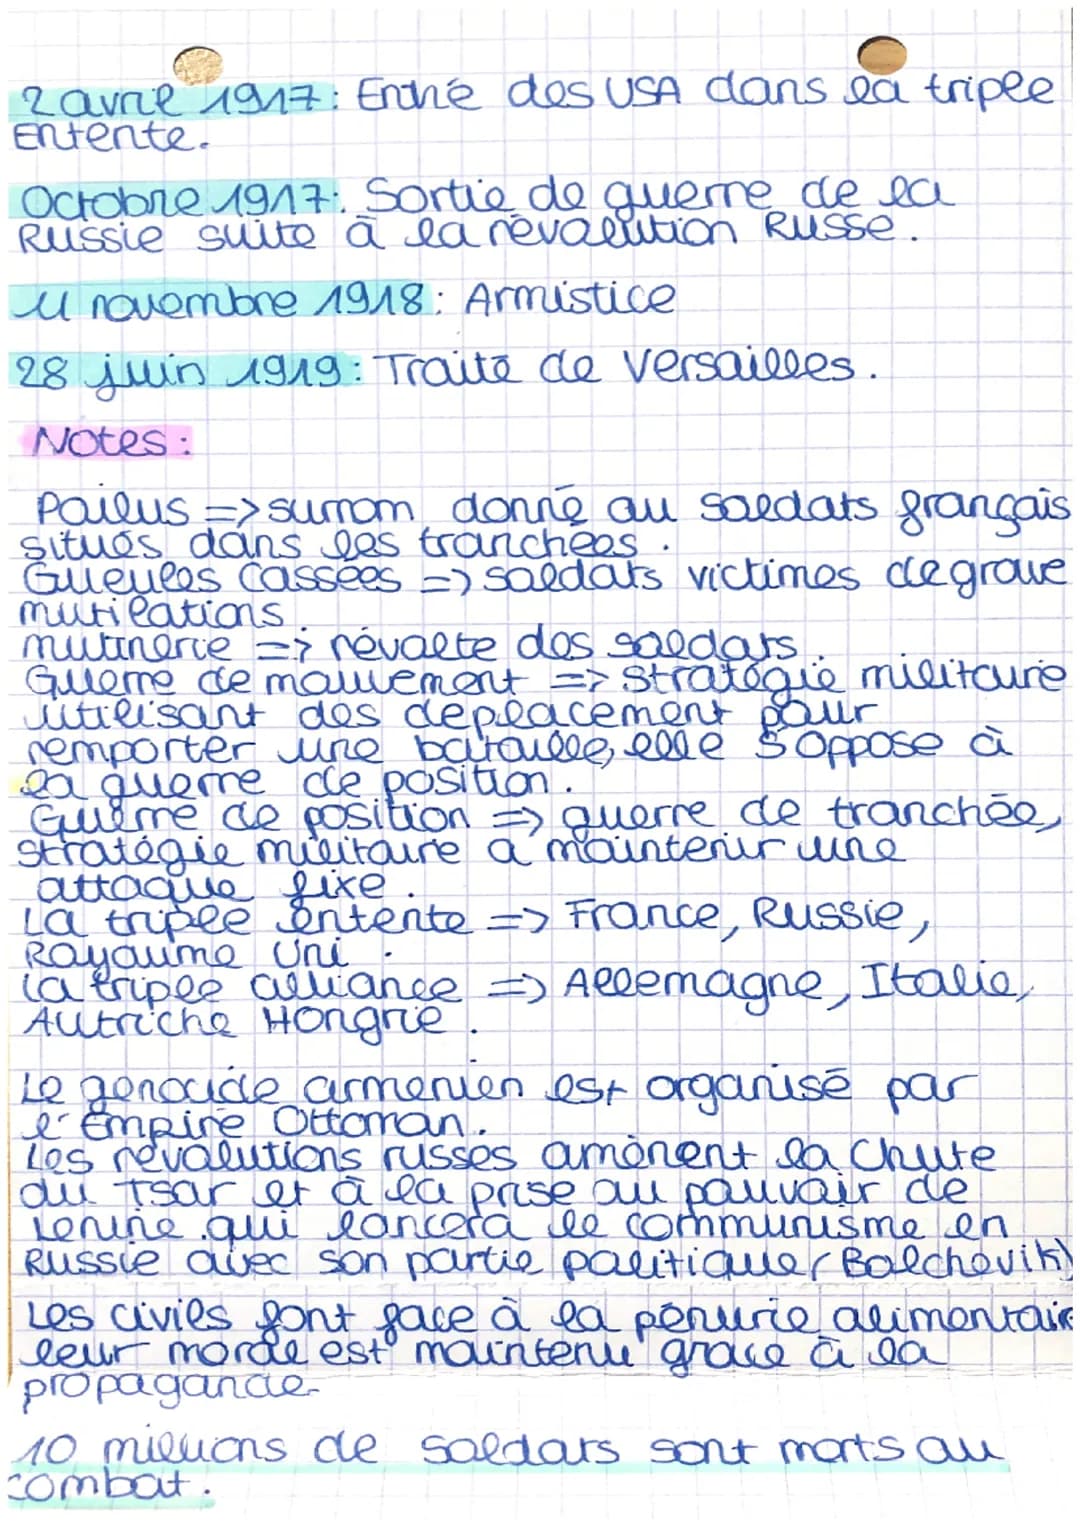 2 avril 1917: Entrée des USA dans la triple
Entente.
Octobre 1917: Sortie de guerre de la
Russie suite à la révolution Russe.
11 novembre 1918: Armistice
28 juin 1919: Traité de Versailles.
Notes:
Poilus => surnom donné au soldats français
situés dans les tranchées.
Gueules cassées => soldats victimes de grave
mutilations.
mutinerie => révolte des soldats.
Guerre de mouvement => Stratégie militaire
utilisant des deplacement pour
remporter une bataille, elle s'oppose à
la guerre de position.
Guerre de position => guerre de tranchée,
stratégie militaire a maintenir une
attaque fixe.
La triple entente => France, Russie,
Royaume Uni.
la triple alliance => Allemagne, Italie,
Autriche Hongrie.
Le genocide armenien est organisé par
l'Empire Ottoman.
Les révolutions russes amènent la chute
du Tsar et à la prise au pouvoir de
Lenine qui lancera le communisme en
Russie avec son partie politique (Bolchevik)
Les civils font face à la pénurie alimentair
leur morale est maintenu grace à la
propagande
10 millions de soldats sont morts au
combat.